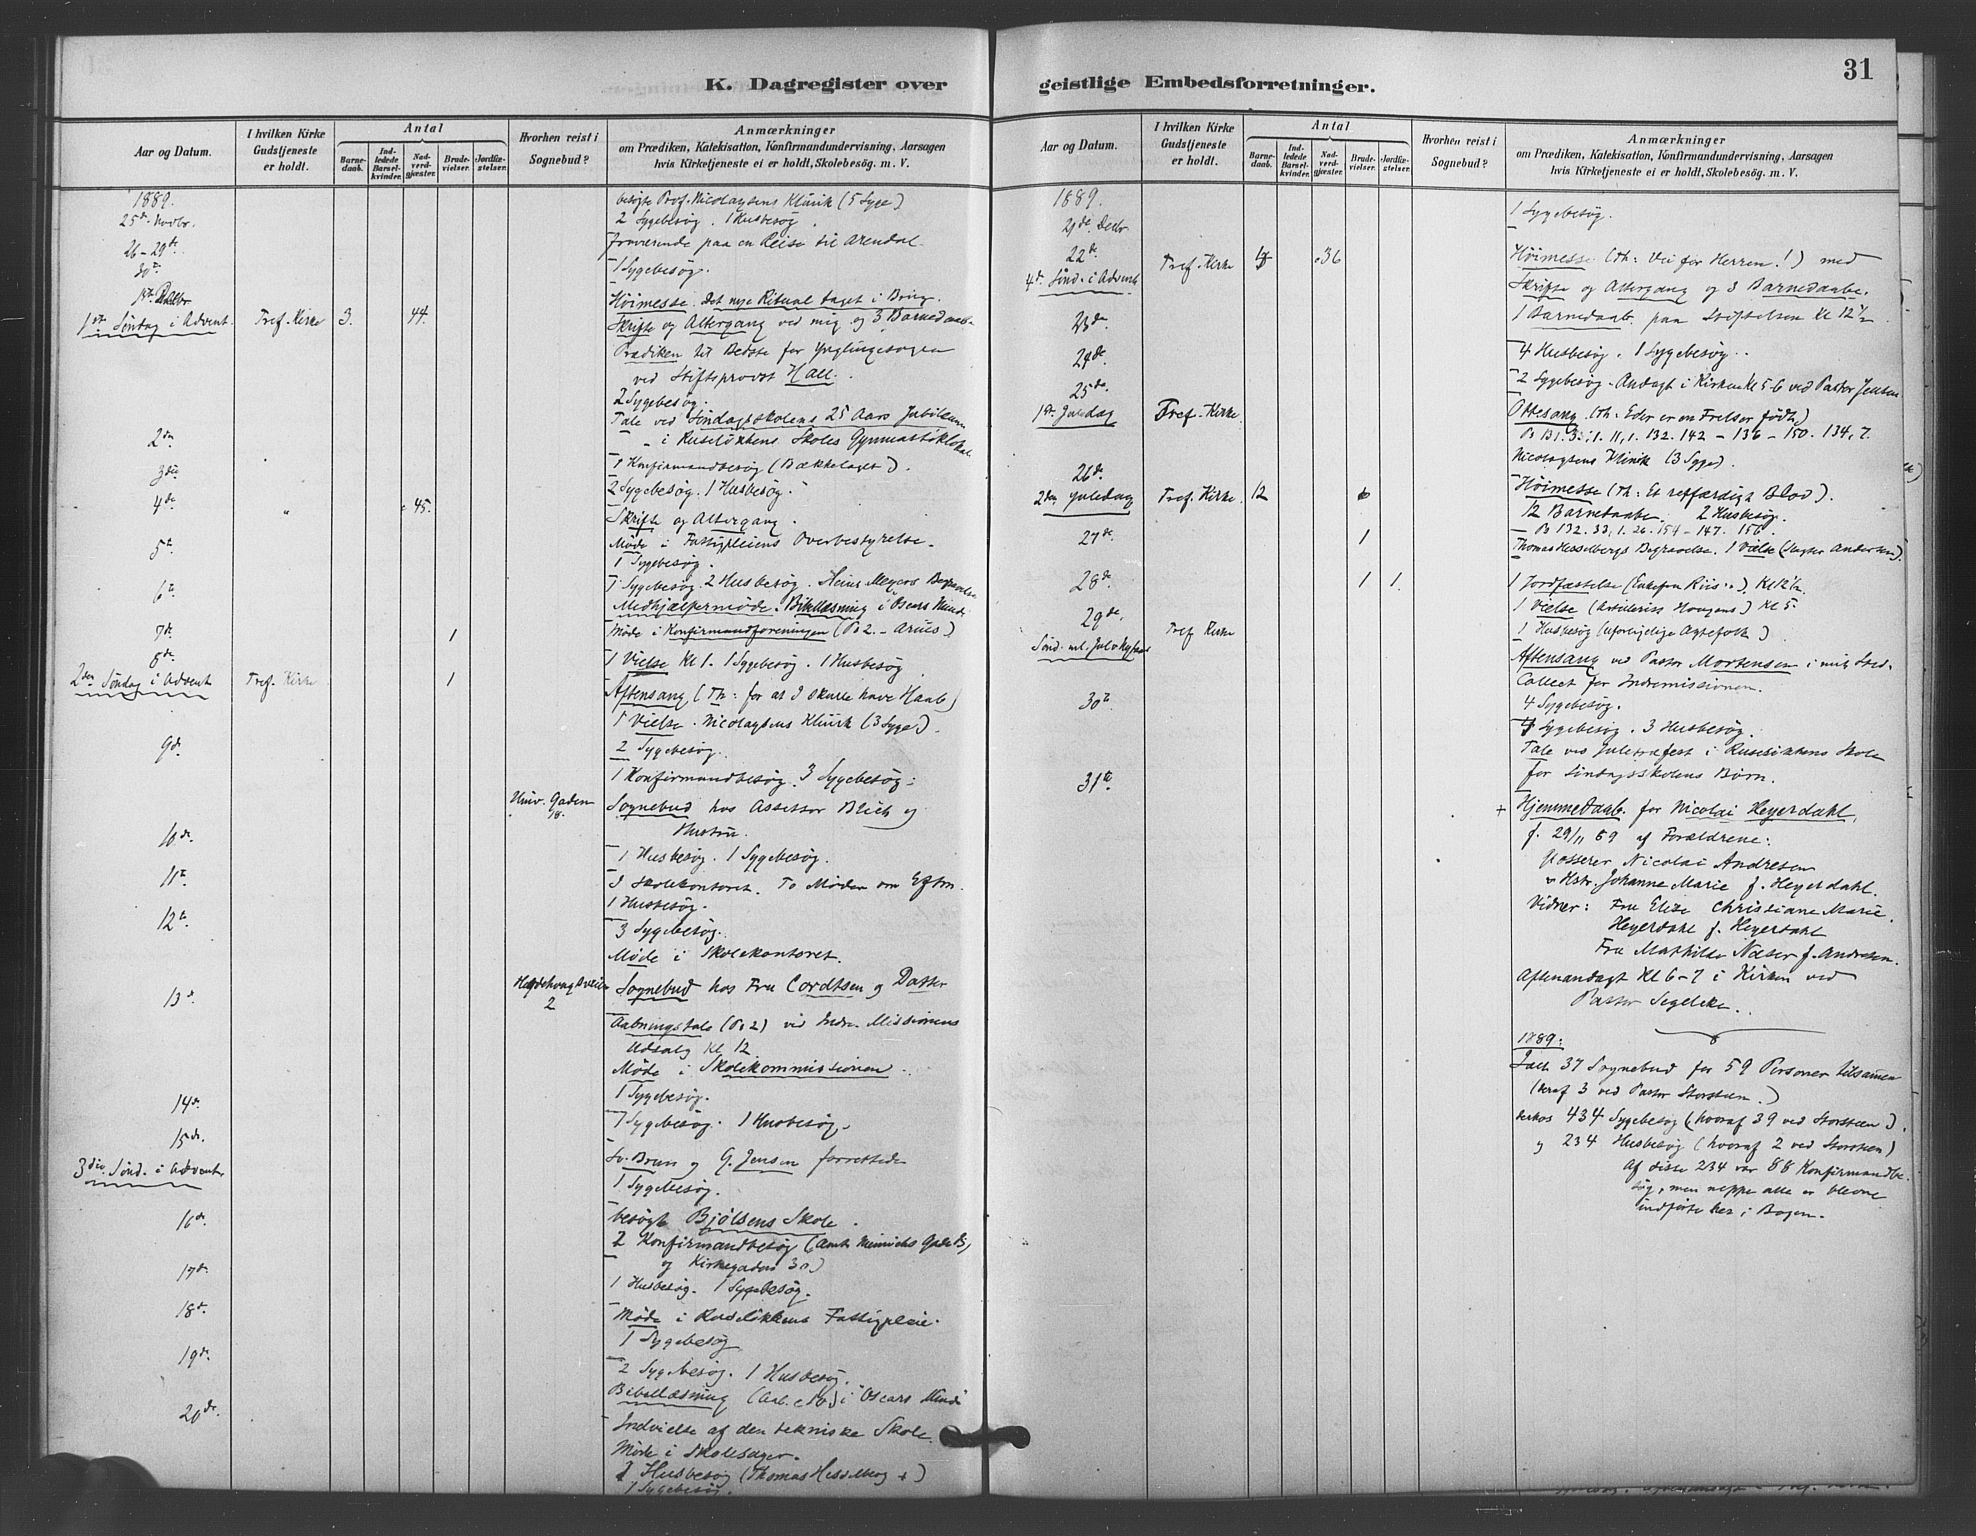 K. Dagregister over
Aar og Datum.
I hvilken Kirke Gudstjeneste er holdt.
Antal
Barne-daab.
Ind-ledede Barsel-kvinder.
Nad-verd-gjæster.
Brude-vielser.
Jordfæ-stelser.
Hvorhen reist i Sognebud?
Anmærkninger
om Prædiken, Katekisation, Konfirmandundervisning, Aarsagen
hvis Kirketjeneste ei er holdt, Skolebesög. m. V.
1889.
25de Novbr.
besøgte Prof. Nicolaysens Klinik (5 Syge)
2 Sygebesøg. 1 Husbesøg
26-29de
fraværende paa en Reise til Arendal.
30te
1 Sygebesøg.
1ste Decbr
1ste Søndag i Advent. Tref. Kirke 3. 44.
Høimesse. Det nye Ritual taget i Brug.
Skrifte og Altergang ved mig og 3 Barnedaab.
Prædiken til Bedste for Ynglingesagen
ved Stiftsprovst Hall.
2 Sygebesøg.
Tale ved Søndagsskolens 25 Aars Jubilæum
2den
i Ruseløkkens Skoles Gymnastiklokal.
1 Konfirmandbesøg (Bækkelaget).
3die
2 Sygebesøg. 1 Husbesøg.
4de " 45.
Skrifte og Altergang.
Møde i Fattigpleiens Overbestyrelse.
5te
1 Sygebesøg.
1 Sygebesøg. 2 Husbesøg. Meyers Begravelse
6te
Medhjælpermøde. Bibellæsning i Oscars Minde
7de 1
Møde i Konfirmandforeningen
8de
1 Vielse Kl 1. 1 Sygebesøg. 1 Husbesøg
2den Søndag i Advent Tref. Kirke 1
Aftensang (Th: for at I skulle have Haab)
1 Vielse. Nicolaysens Klinik (3 Syge).
9de
2 Sygebesøg.
1 Konfirmandbesøg. 3 Sygebesøg.
Univ. Gaden 18.
Sognebud hos Assessor Blich og
Hustru.
10de
1 Husbesøg. 1 Sygebesøg.
11te
I Skolekontoret. To Møder om Eftm.
1 Husbesøg.
12te
3 Sygebesøg.
Møde i Skolekontoret.
Hegdehaugsveien 2
13de
Sognebud hos Fru Cordtsen og Datter
Aabningstale ved Indre Missionens
Udsalg Kl 12
Møde i Skolekommissionen.
1 Sygebesøg.
14de
1 Sygebesøg. 1 Husbesøg.
15de
3die Sønd. i Advent
Sv. Brun og G. Jensen forrettede
1 Sygebesøg.
16de
besøgt Bjølsens Skole.
2 Konfirmandbesøg
og Kirkegaden 30)
17de
1 Husbesøg. 1 Sygebesøg.
18de
Møde i Ruseløkkens Fattigpleie.
1 Sygebesøg
19de
2 Sygebesøg. 1 Husbesøg.
Bibellæsning i "Oscars Minde"
20de
Indvielse af den tekniske Skole.
Møde i Skolesager.
2 Husbesøg (Thomas Hesselberg +)
1 Sygebesøg.
geistlige Embedsforretninger.
31
Aar og Datum.
I hvilken Kirke Gudstjeneste er holdt.
Antal
Barne-daab.
Ind-ledede Barsel-kvinder.
Nad-verd-gjæster.
Brude-vielser.
Jordfæ-stelser.
Hvorhen reist i Sognebud?
Anmærkninger
om Prædiken, Katekisation, Konfirmandundervisning, Aarsagen
hvis Kirketjeneste ei er holdt, Skolebesög. m. V.
1889.
21de Decbr
1 Sygebesøg.
22de
4de Sønd. i Advent Tref. Kirke 36
Høimesse (Th: Vei for Herren!) med
Skrifte og Altergang og 3 Barnedaabe.
1 Barnedaab paa Stiftelsen Kl 12½
23de
4 Husbesøg. 1 Sygebesøg.
24de
2 Sygebesøg. Andagt i Kirken Kl 5-6 ved Pastor Jensen
25de
1ste Juledag Tref. Kirke
Ottesang (Th: Eder er en Frelser født)
132. 142 – 136 – 150. 134, 7.
Nicolaysens Klinik (3 Syge).
26de
2den Juledag Tref. Kirke. 12
Høimesse (Th: Et retfærdigt Blod).
12 Barnedaabe. 2 Husbesøg.
132. 33, 1. 26. 154 – 147. 156.
27de 1
Thomas Hesselbergs Begravelse. 1 Vielse
28de 1 1.
1 Jordfæstelse (Enkefru Riis), Kl 12½
1 Vielse Kl 5
29de
Sønd. ml. Jul og Nytaar Tref Kirke
1 Husbesøg (uforligelige Ægtefolk)
Aftensang ved Pastor Mortensen i mit Sted.
Collect for Indremissionen.
30te
4 Sygebesøg.
4 Sygebesøg. 3 Husbesøg.
Tale ved Juletræfest i Ruseløkkens Skole
for Søndagsskolens Børn.
31te
+ Hjemmedaab for Nicolai Heyerdahl,
f. 29/11 89 af Forældrene:
Kasserer Nicolai Andresen
og Hstr. Johanne Marie f. Heyerdahl.
Vidner: Fru Elise Christiane Marie
Heyerdahl f. Heyerdahl
Fru Mathilde Næser f. Andresen.
Aftenandagt Kl 6-7 i Kirken ved
Pastor Segelcke.
1889:
Ialt 37 Sognebud for 59 Personer tilsammen
(deraf 3 ved Pastor Storsteen.)
derhos 434 Sygebesøg (hvoraf 39 ved Storsteen).
og 234 Husbesøg (hvoraf 2 ved Storsteen)
Af disse 234 var 88 Konfirmandbe-
søg, men neppe alle er blevne
indførte her i Bogen.